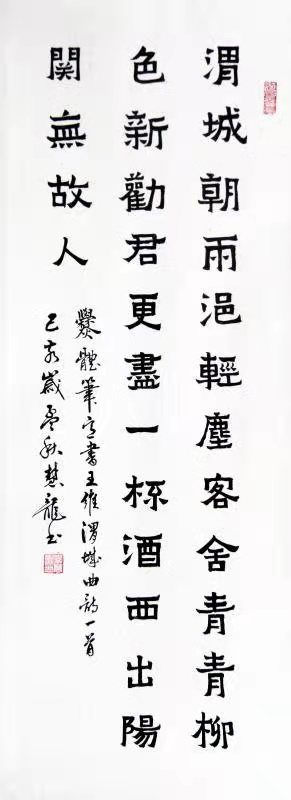 渭城朝雨浥輕塵客舍青青柳
色新勸君更盡一杯酒西出陽
關無故人
爨體筆意書王維渭城曲詩一首
己亥歲孟秋慧龍书